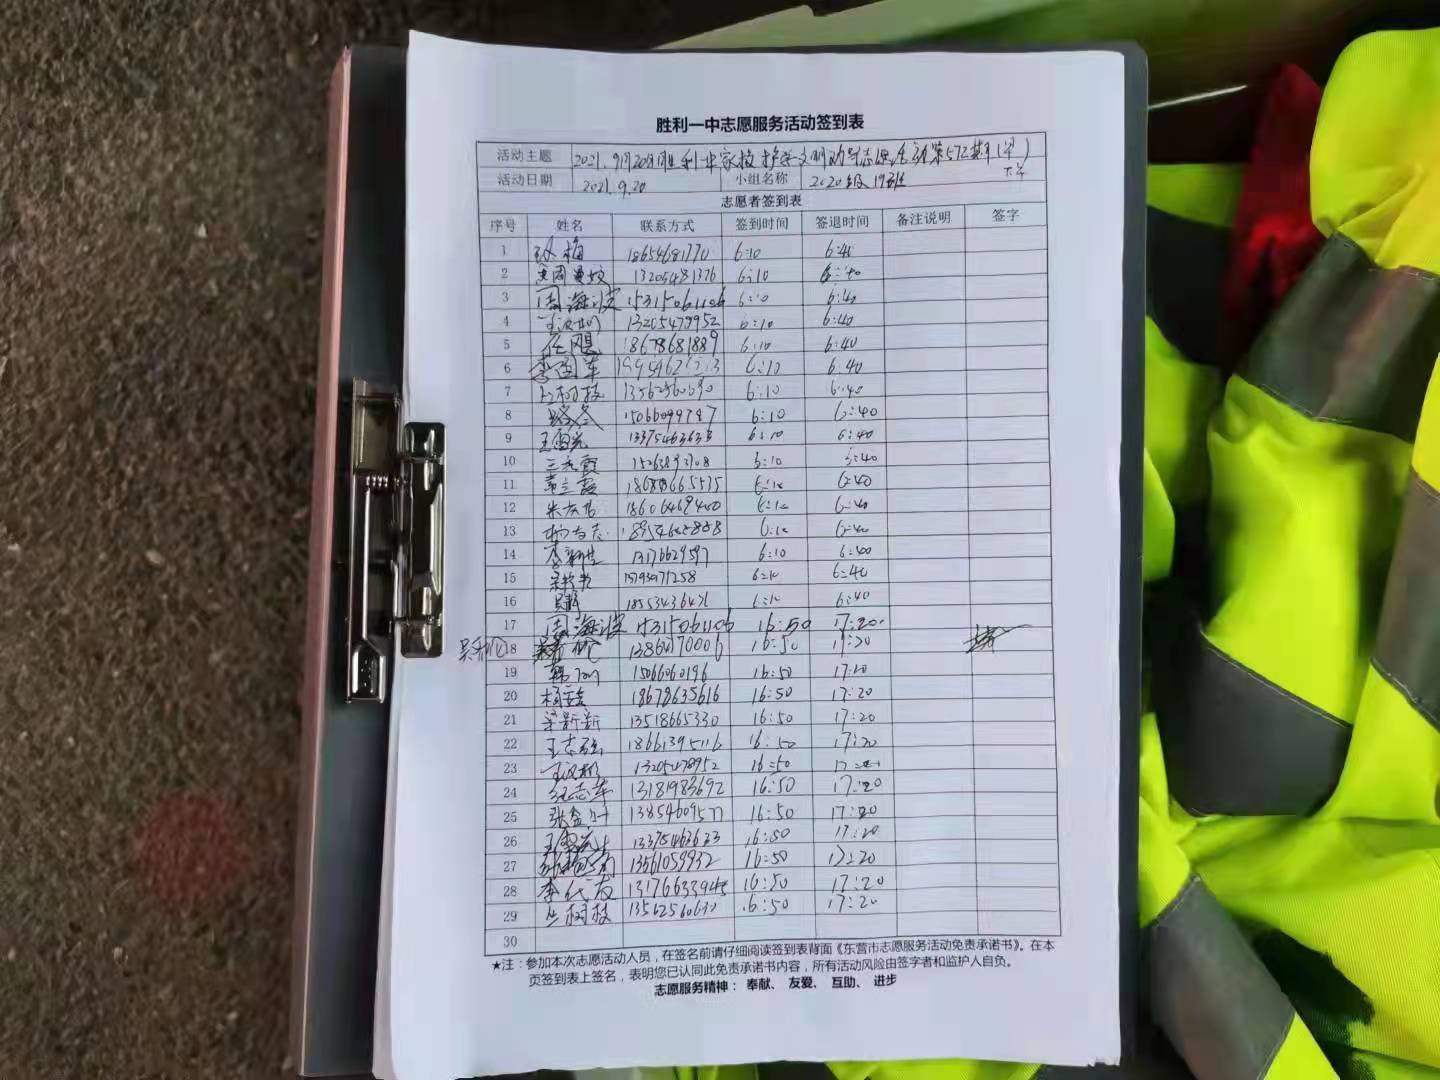 胜利一中志愿服务活动签到表
活动主题 2021.9月20日胜利一中家校护学文明助导志愿活动第572期(
活动日期 2021.9.20 小组名称 2020级19班
志愿者签到表
序号 姓名 联系方式 签到时间 签退时间 备注说明 签字
1 孙梅 18654681770 6:10 6:40
2 13205481376 6:10 6:40
3 周海波 15315061106 6:10 6:40
4 王汉彬 13205478952 6:10 6:40
5 任飓 18678681889 6:10 6:40
6 李国华 6:10 6:40
7 丛树枝 13562560630 6:10 6:40
8 15066099787 6:10 6:40
9 王雷先 13375463633 6:10 6:40
10 王永霞 6:10 6:40
11 董立霞 18678665535 6:10 6:40
12 朱友吉 18606469400 6:10 6:40
13 杨友志 18954608888 6:10 6:40
14 李新芝 13176629597 6:10 6:40
15 6:10 6:40
16 吴静 18553436421 6:10 6:40
17 周海波 15315061106 16:50 17:20
吴希悦 18 13864770006 16:50 17:20
19 韩刚 15066060196 16:50 17:20
20 杨鑫 18678635616 16:50 17:20
21 梁新新 13518665330 16:50 17:20
22 王志强 18661395116 16:50 17:20
23 王汉彬 13205478952 16:50 17:20
24 纪志军 13181983692 16:50 17:20
25 张金叶 13854609577 16:50 17:20
26 王雷先 13375463633 16:50 17:20
27 13561059932 16:50 17:20
28 李代友 13176633945 16:50 17:20
29 丛树枝 13562560630 16:50 17:20
30
★注：参加本次志愿活动人员，在签名前请仔细阅读签到表背面《东营市志愿服务活动免责承诺书》。在本
页签到表上签名，表明您已认同此免责承诺书内容，所有活动风险由签字者和监护人自负。
志愿服务精神： 奉献、 友爱、 互助、 进步